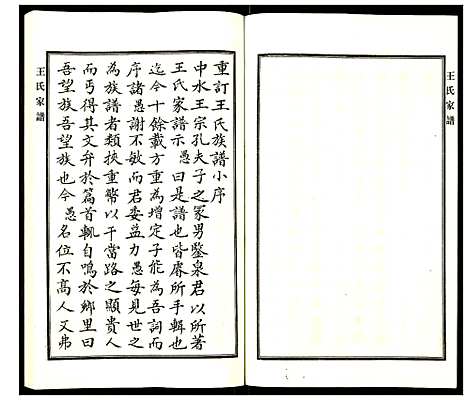 王氏家譜
重訂王氏族譜小序
中水王宗孔夫子之冢男鑒泉君以所著
王氏家譜示愚曰是譜也皆睿所手輯也
迄今十餘載方重為增定子能為吾詞而
序諸愚謝不敏而君委益力愚每見世之
為族譜者類挾重幣以干當路之顯貴人
而丐得其文弁於篇首輒自鳴於鄉里曰
吾望族吾望族也今愚名位不高人又弗
王氏家譜